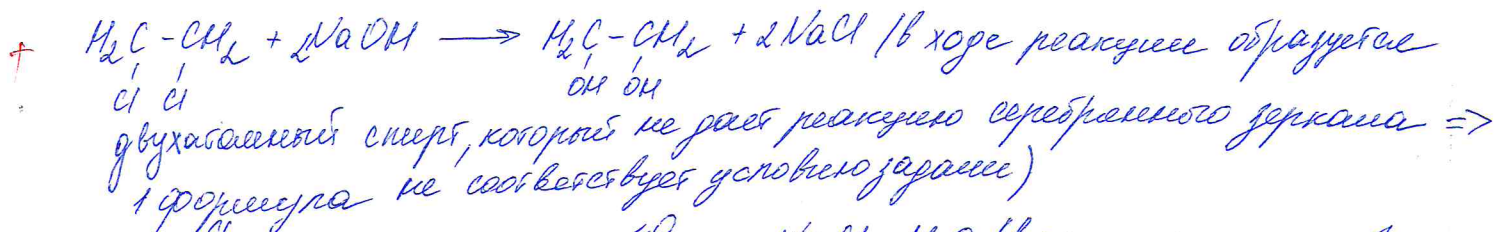 + H₂C - CH₂ + 2NaOH ⟶ H₂C - CH₂ + 2NaCl (в ходе реакции образуется
Cl Cl OH OH
двухатомный спирт, который не дает реакцию серебрянного зеркала =>
1 формула не соответствует условию задачи)